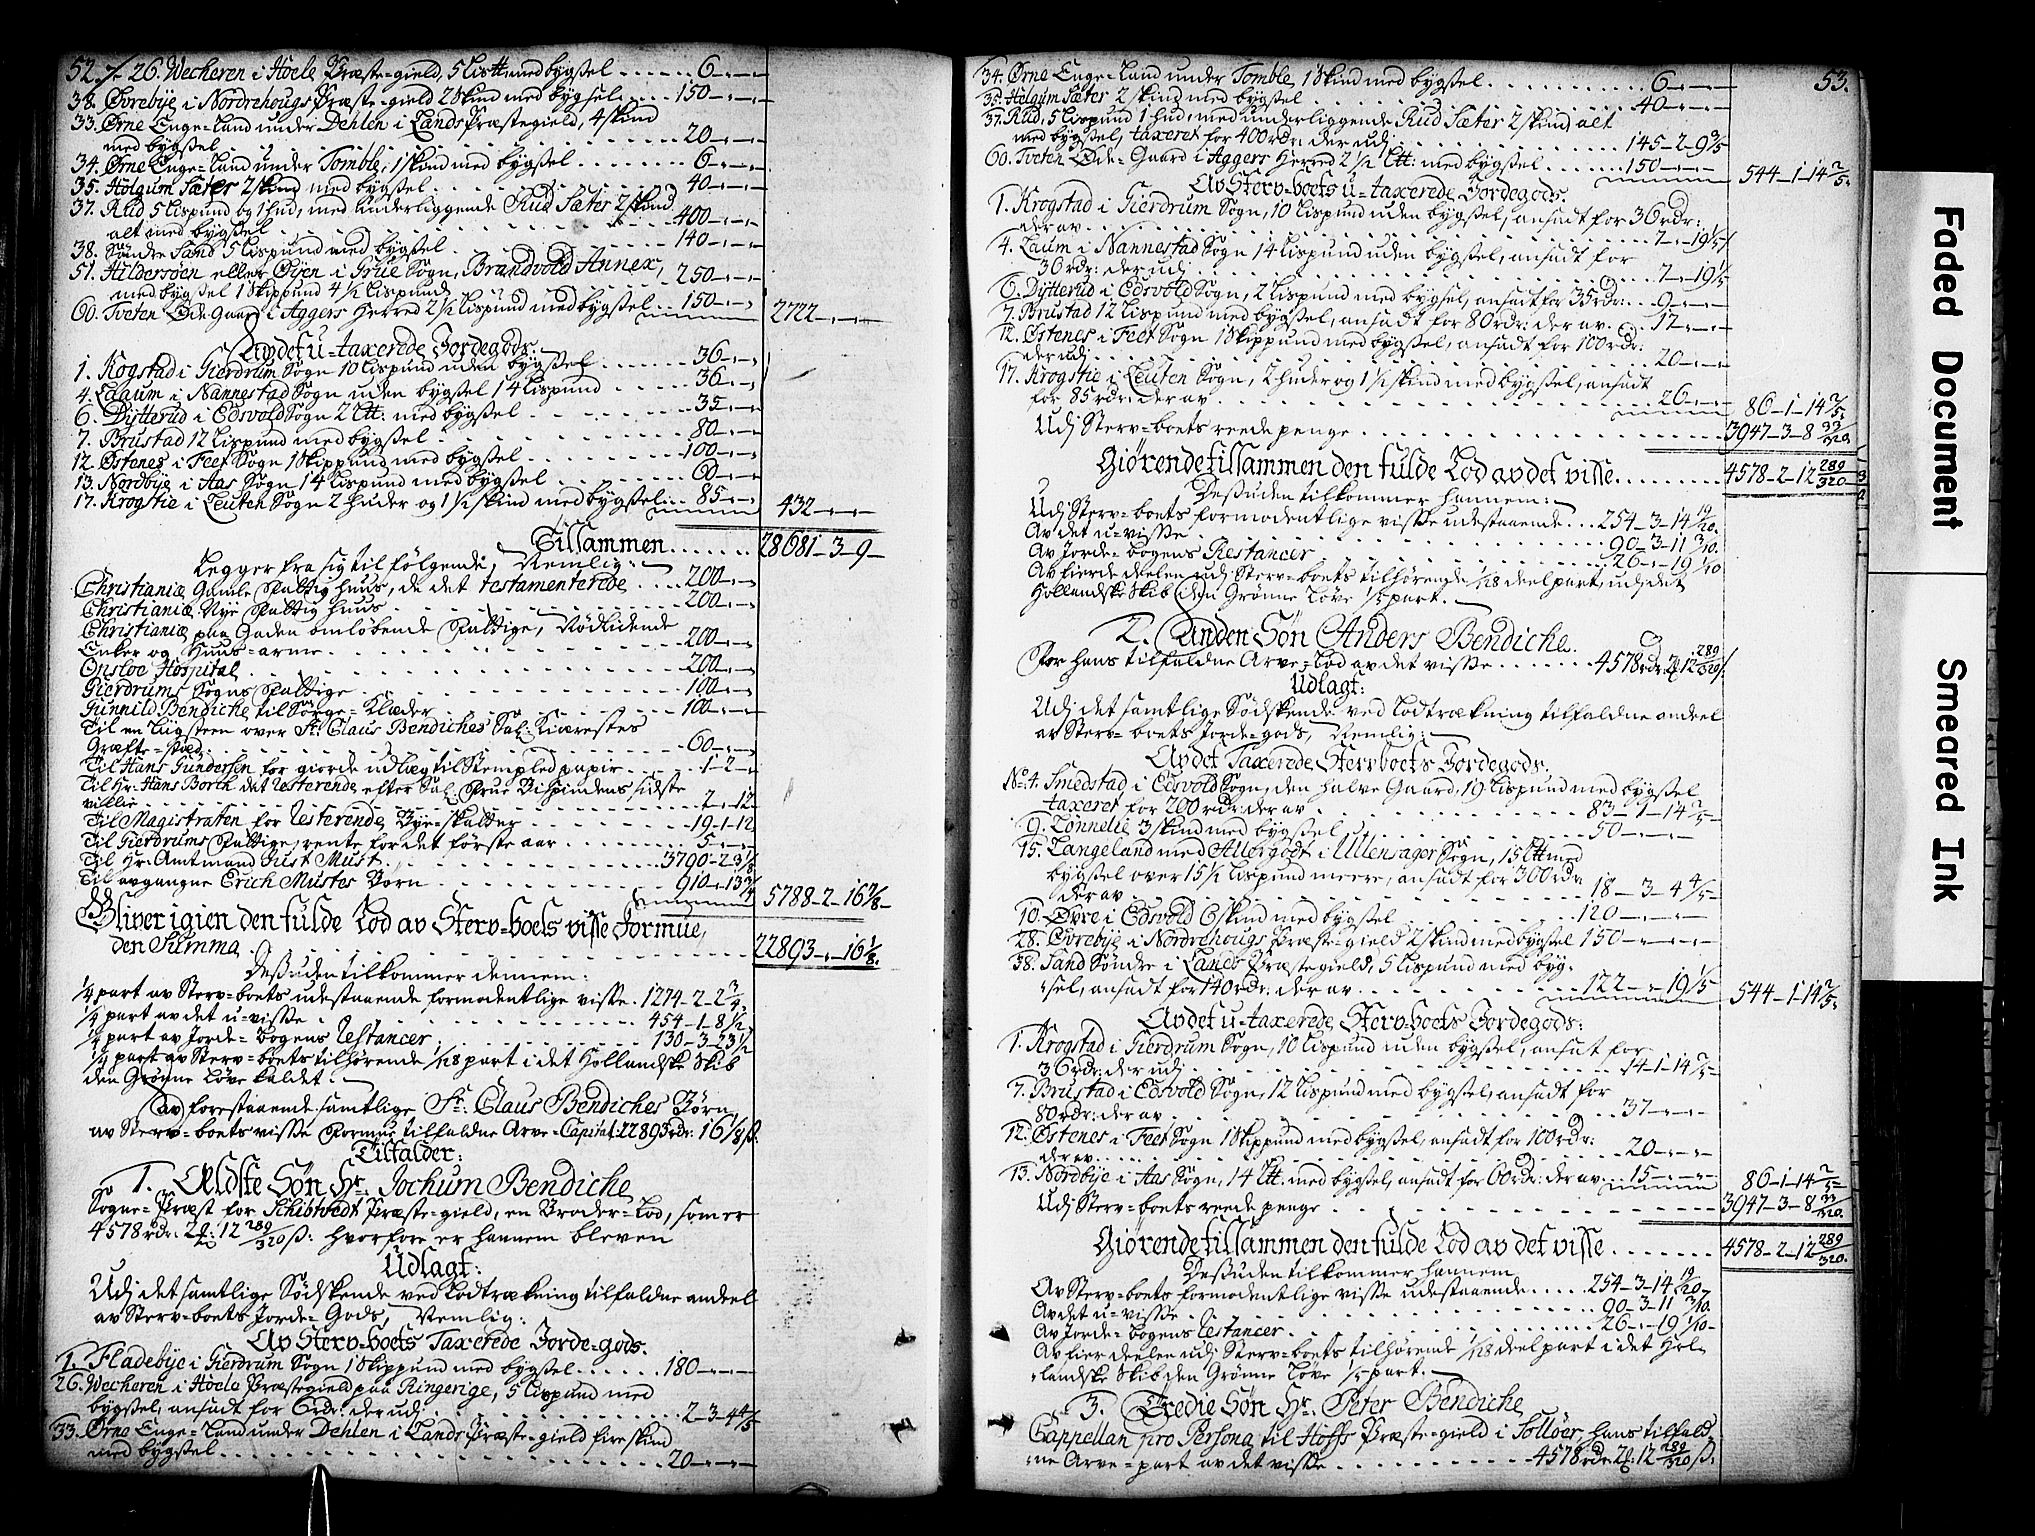 52. 26. Wecheren i Hoele Præste-gield, 5 Lis℔ med bygßel . . . . . . 6 - „ - „
38. Øvrebÿe i Nordrehougs Præste-gield 2 Skind med bygsel . . . . 150 - „ - „
33. Ørne Enge-Land under Dehlen i Lands Præstegield, 4 skind
med bygßel . . . . . . 20 - „ - „
34. Ørne Enge-Land under Tomble, 1 skind med bygßel . . . . . . 6 - „ - „
35. Holgum Sæter 2 skind med bygßel . . . . . . 40 - „ - „
37. Rud 5 Lispund og 1 hud, med underliggende Rud Sæter 2 skind
alt med bygßel . . . . . . 400 - „ - „
38. Søndre Sand 5 Lispund med bygßel . . . . . . 140 - „ - „
51. Hildersøen eller Øÿen i Grue Sogn, Brandvold Annex,
med bygßel 1 Skippund 4 1/2 Lispund . . . 250 - „ - „
60. Tveten Øde Gaard i Aggers Herred 2 1/2 Lispund med bygßel . . 150 - „ - „ 2722 - „ - „
Av det u-taxerede Jordegods:
1. Kogstad i Gierdrum Sogn 10 Lispund uden bygßel . . . . . . 36 - „ - „
4. Laaum i Nannestad Sogn uden bygßel 14 Lispund . . . . . . 36 - „ - „
6. Dÿtterud i Edsvold Sogn 2 L℔: med bygßel . . . . . . 35 - „ - „
7. Brustad 12 Lispund med bygßel . . . . . . 80 - „ - „
12. Østenes i Feet Sogn 1 Skippund med bygßel . . . . . . 100 - „ - „
13. Nordbÿe i Aas Sogn 14 Lispund med bygßel . . . . . . 60 - „ - „
17. Krogstie i Leuten Sogn 2 huder og 1 1/2 skind med bygßel . . . 85 - „ - „ 432 - „ - „
Tillsammen . . . . . . 28681 - 3 - 9 -
Legger fra sig til følgende, Nemlig:
Christianiæ Gamle Fattig huus, de det testamenterede . . . . 200 - „ - „
Christianiæ Nÿe Fattig huus . . . . . . 200 - „ - „
Christianiæ paa Gaden omløbende Fattige, Nødlidende
Enker og Huus-arme . . . . . . 200 - „ - „
Onsloe Hospital . . . . . . 200 - „ - „
Gierdrums Sogns Fattige . . . . . . 100 - „ - „
Gunnild Bendiche til Sørge-Klæder . . . . . . 100 - „ - „
Til en Liigsteen over Sr. Claus Bendiches Sal: Kiærestes
Grafte-stæd . . . . . . 60 - „ - „
Til Hans Gundersen for giorde udlæg til Stempled papir . . . . 1 - 2 - „
Til Hr: Hans Borch det resterende efter Sal: Frue Bispindens sidste
villie . . . . . . 7 - „ - 12
Til Magistraten for resterende Bÿe-skatter . . . . . . 19 - 1 - 12
Til Gierdrums Fattige, rente for det første aar . . . . . . 5 - „ - „
Til Hr: Amtmand Just Must . . . . . . 3790 - 2 3 1/8
Til avgangne Erich Mustes Børn . . . . . . 910 - „ 13 3/4 5788 - 2 - 16 7/8 -
Bliver igien den fulde Lod av Sterv-boets visse Formue,
den Summa . . . . . . 22893 - „ - 16 1/8.
Deßuden tilkommer dennem:
1/4 part av Sterv-boets udestaaende formodentlige visse . 1274 - 2 - 2 3/4
1/4 part av det u-visse . . . . . . 454 - 1 - 8 1/2
1/4 part av Jorde-bogens Restancer . . . . . . 130 - 3 - 23 1/2
1/4 part av Sterv-boets tilhørende 1/18 part i det Hollandske Skib
den Grønne Løve kaldet.
av forestaaende samtlige Sr: Claus Bendiches Børn,
av Sterv-boets visse Formue tilfaldne Arve-Capital: 22893 rdr: 16 1/8 ß:
Tilfalder:
1. Ældste Søn Hr: Jochum Bendiche
Sogne-Præst for Schibtvedt Præste-gield, en Broder-Lod, som er
4578 rdr: 2 ℈: 12 289/320 ß: hvorfore er hannem bleven
Udlagt:
Udj det samtlige Sødskende ved Lodtrækning tilfaldne andeel
av Sterv-boets Jorde-Gods, Nemlig:
Av Sterv-boets Taxerede Jorde-gods.
1. Fladebÿe i Gierdrum Sogn 1 Skippund med bygßel . . . . . 180 - „ - „
26. Wecheren i Hoele Præstegield paa Ringerige, 5 Lispund med
bygßel, ansadt for 6 rdr: der udj . . . . . . 2 - 3 - 4 4/5
33. Ørne Enge-Land under Dehlen i Lands Præste-gield fire skind
med bygßel . . . . . . 20 - „ - „
53.
34. Ørne Enge-Land under Tomble, 1 Skind med bygßel . . . . . . 6 - „ - „
35. Holgum Sæter 2 skind med bygßel . . . . . . 40 - „ - „
37. Rud, 5 Lispund 1 hud, med underliggende Rud Sæter 2 skind, alt
med bygßel, taxeret for 400 rdr: der udj . . . . . . 145 - 2 - 9 3/5
60. Tveten Øde-Gaard i Aggers Herred 2 1/2 L℔: med bygßel . . . . 150 - „ - „ 544 - 1 - 14 2/5.
Av Sterv-boets u-taxerede Jordegods.
1. Krogstad i Gierdrum Sogn, 10 Lispund uden bygßel, ansadt for 36 rdr:
der av . . . . . . 7 - „ - 19 1/5
4. Laum i Nannestad Sogn 14 Lispund uden bygßel, ansadt for
36 rdr: der udj . . . . . . 7 - „ - 19 1/5
6. Dÿtterud i Edsvold Sogn, 2 Lispund med bygßel, ansadt for 35 rdr: . . 9 - „ - „
7. Brustad 12 Lispund med bygßel, ansadt for 80 rdr: der av . . . 17 - „ - „
12. Østenes i Feet Sogn 1 Skippund med bygßel, ansadt for 100 rdr:
der udj . . . . . . 20 - „ - „
17. Krogstie i Leuten Sogn, 2 huder og 1 1/2 skind med bygßel, ansadt
for 85 rdr: der av . . . . . . 26 - „ - „ 86 - 1 - 14 2/5
Udj Sterv-boets reede penge . . . . . . 3947 - 3 - 8 33/320
Giørende tilsammen den fulde Lod av det visse . . . . . . 4578 - 2 - 12 289/320
Deßuden tilkommer hannem:
Udj Sterv-boets formodentlige visse udestaaende . . . 254 - 3 - 14 19/20.
Av det u-visse . . . . . . 90 - 3 - 11 3/10.
Av Jorde-bogens Restancer . . . . . . 26 - „ - 19 1/10
Av fierde deelen udj Sterv-boets tilhørende 1/18 deel part, udj det
Hollandske Skib den Grønne Løve 1/5 part.
2. Anden Søn Anders Bendiche.
For hans tilfaldne Arve-Lod av det visse . . . . . . 4578 rdr: 2 ℈ 12 289/320 ß
Udlagt:
Udj det samtlige Sødskende ved Lodtrækning tilfaldne andeel
av Sterv-boets Jorde-gods, Nemlig:
Av det Taxerede Sterv-boets Jordegods.
No: 4. Smedstad i Edsvold Sogn, den halve Gaard, 19 Lispund med bygßel
taxeret for 200 rdr: der av . . . . . . 83 - 1 - 14 2/5
9. Lønnelie 3 skind med bygßel . . . . . . 50 - „ - „
15. Langeland med Allergodt i Ullensager Sogn, 15 L℔ med
bygßel over 15 1/2 Lispund meere, ansadt for 300 rdr
der av . . . . . . 18 - 3 - 4 4/5
10. Øvre i Edsvold 6 skind med bygßel . . . . . . 120 - „ - „
28. Øvrebÿe i Nordrehougs Præste-gield 2 skind med bygßel 150 - „ - „
38. Sand Søndre i Lands Præstegield, 5 Lispund med byg-
sel, ansadt for 140 rdr: der av . . . . . . 122 - „ - 19 1/5 544 - 1 - 14 2/5
Av det u-taxerede Sterv-boets Jordegods:
1. Krogstad i Gierdrum Sogn, 10 Lispund uden bygßel, ansat for
36 rdr: der udj . . . . . . 14 - 1 - 14 2/5
7. Brustad i Edsvold Sogn, 12 Lispund med bygßel, ansadt for
80 rdr: der av . . . . . . 37 - „ - „
12. Østenes i Feet Sogn 1 Skippund med bygßel, ansadt for 100 rdr:
der av . . . . . . 20 - „ - „
13. Nordbÿe i Aas Sogn, 14 L℔. med bygßel, ansadt for 60 rdr: der av . . . 15 - „ - „ 86 - 1 - 14 2/5
Udj Sterv-boets reede penge . . . . . . 3947 - 3 - 8 33/320.
Giørende tilsammen den fulde Lod av det visse . . . . . . 4578 - 2 - 12 289/320.
Deßuden tilkommer hannem
Av Sterv-boets formodentlige visse udestaaende . . . . . 254 - 3 - 14 19/20
Av det u-visse . . . . . . 90 - 3 - 11 3/10
Av Jorde-bogens restancer . . . . . . 26 - „ - 19 1/10 -
Av fier deelen udj Sterv-boets tilhørende 1/18 deel part i det Hol-
landske Skib den Grønne Løve 1/5 part.
3. Tredie Søn Hr: Peter Bendiche
Cappellan pro Persona til Hoffs Præste-gield i Solløer, hans tilfald-
ne Arve-part av det visse . . . . . . 4578 rdr: 2 ℈: 12 289/320 ß:
Faded Document
Smeared Ink